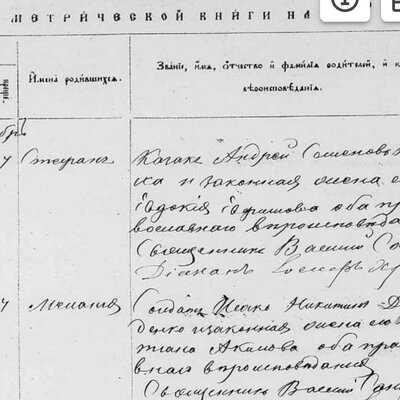 МЕТРИЧЕСКОЙ КНИГИ НА
Имена родившихся.
Званіе, имя, отчество и фамилія родителей, и к
вѣроисповѣданія.
Стефанъ
Казакъ Андрей Семеновъ
ха и законная жена е
Евдокія Ефимова оба пр
вославнаго вѣроисповѣда
Священникъ Василій
Діаконъ
Меланія
Солдатъ Никитинъ
денко и законная жена его
тіана Акимова оба пра
внаго вѣроисповѣданія
Священникъ Василій